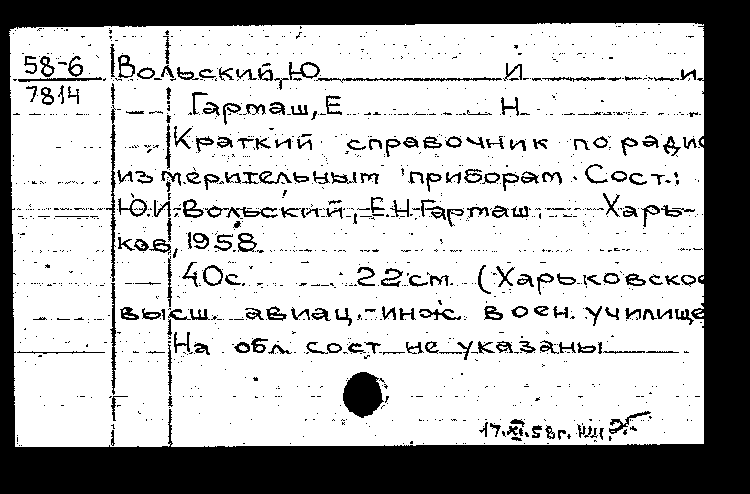 58-6 Вольский, Ю И и
7814 Гармаш, Е Н
Краткий справочник по радио
измерительным приборам. Сост.:
Ю.И. Вольский, Е.Н. Гармаш. Харь-
ков, 1958.
40с. 22см (Харьковское
высш. авиац.-инж. воен. училище
На обл. сост. не указаны
17.XI.58г.